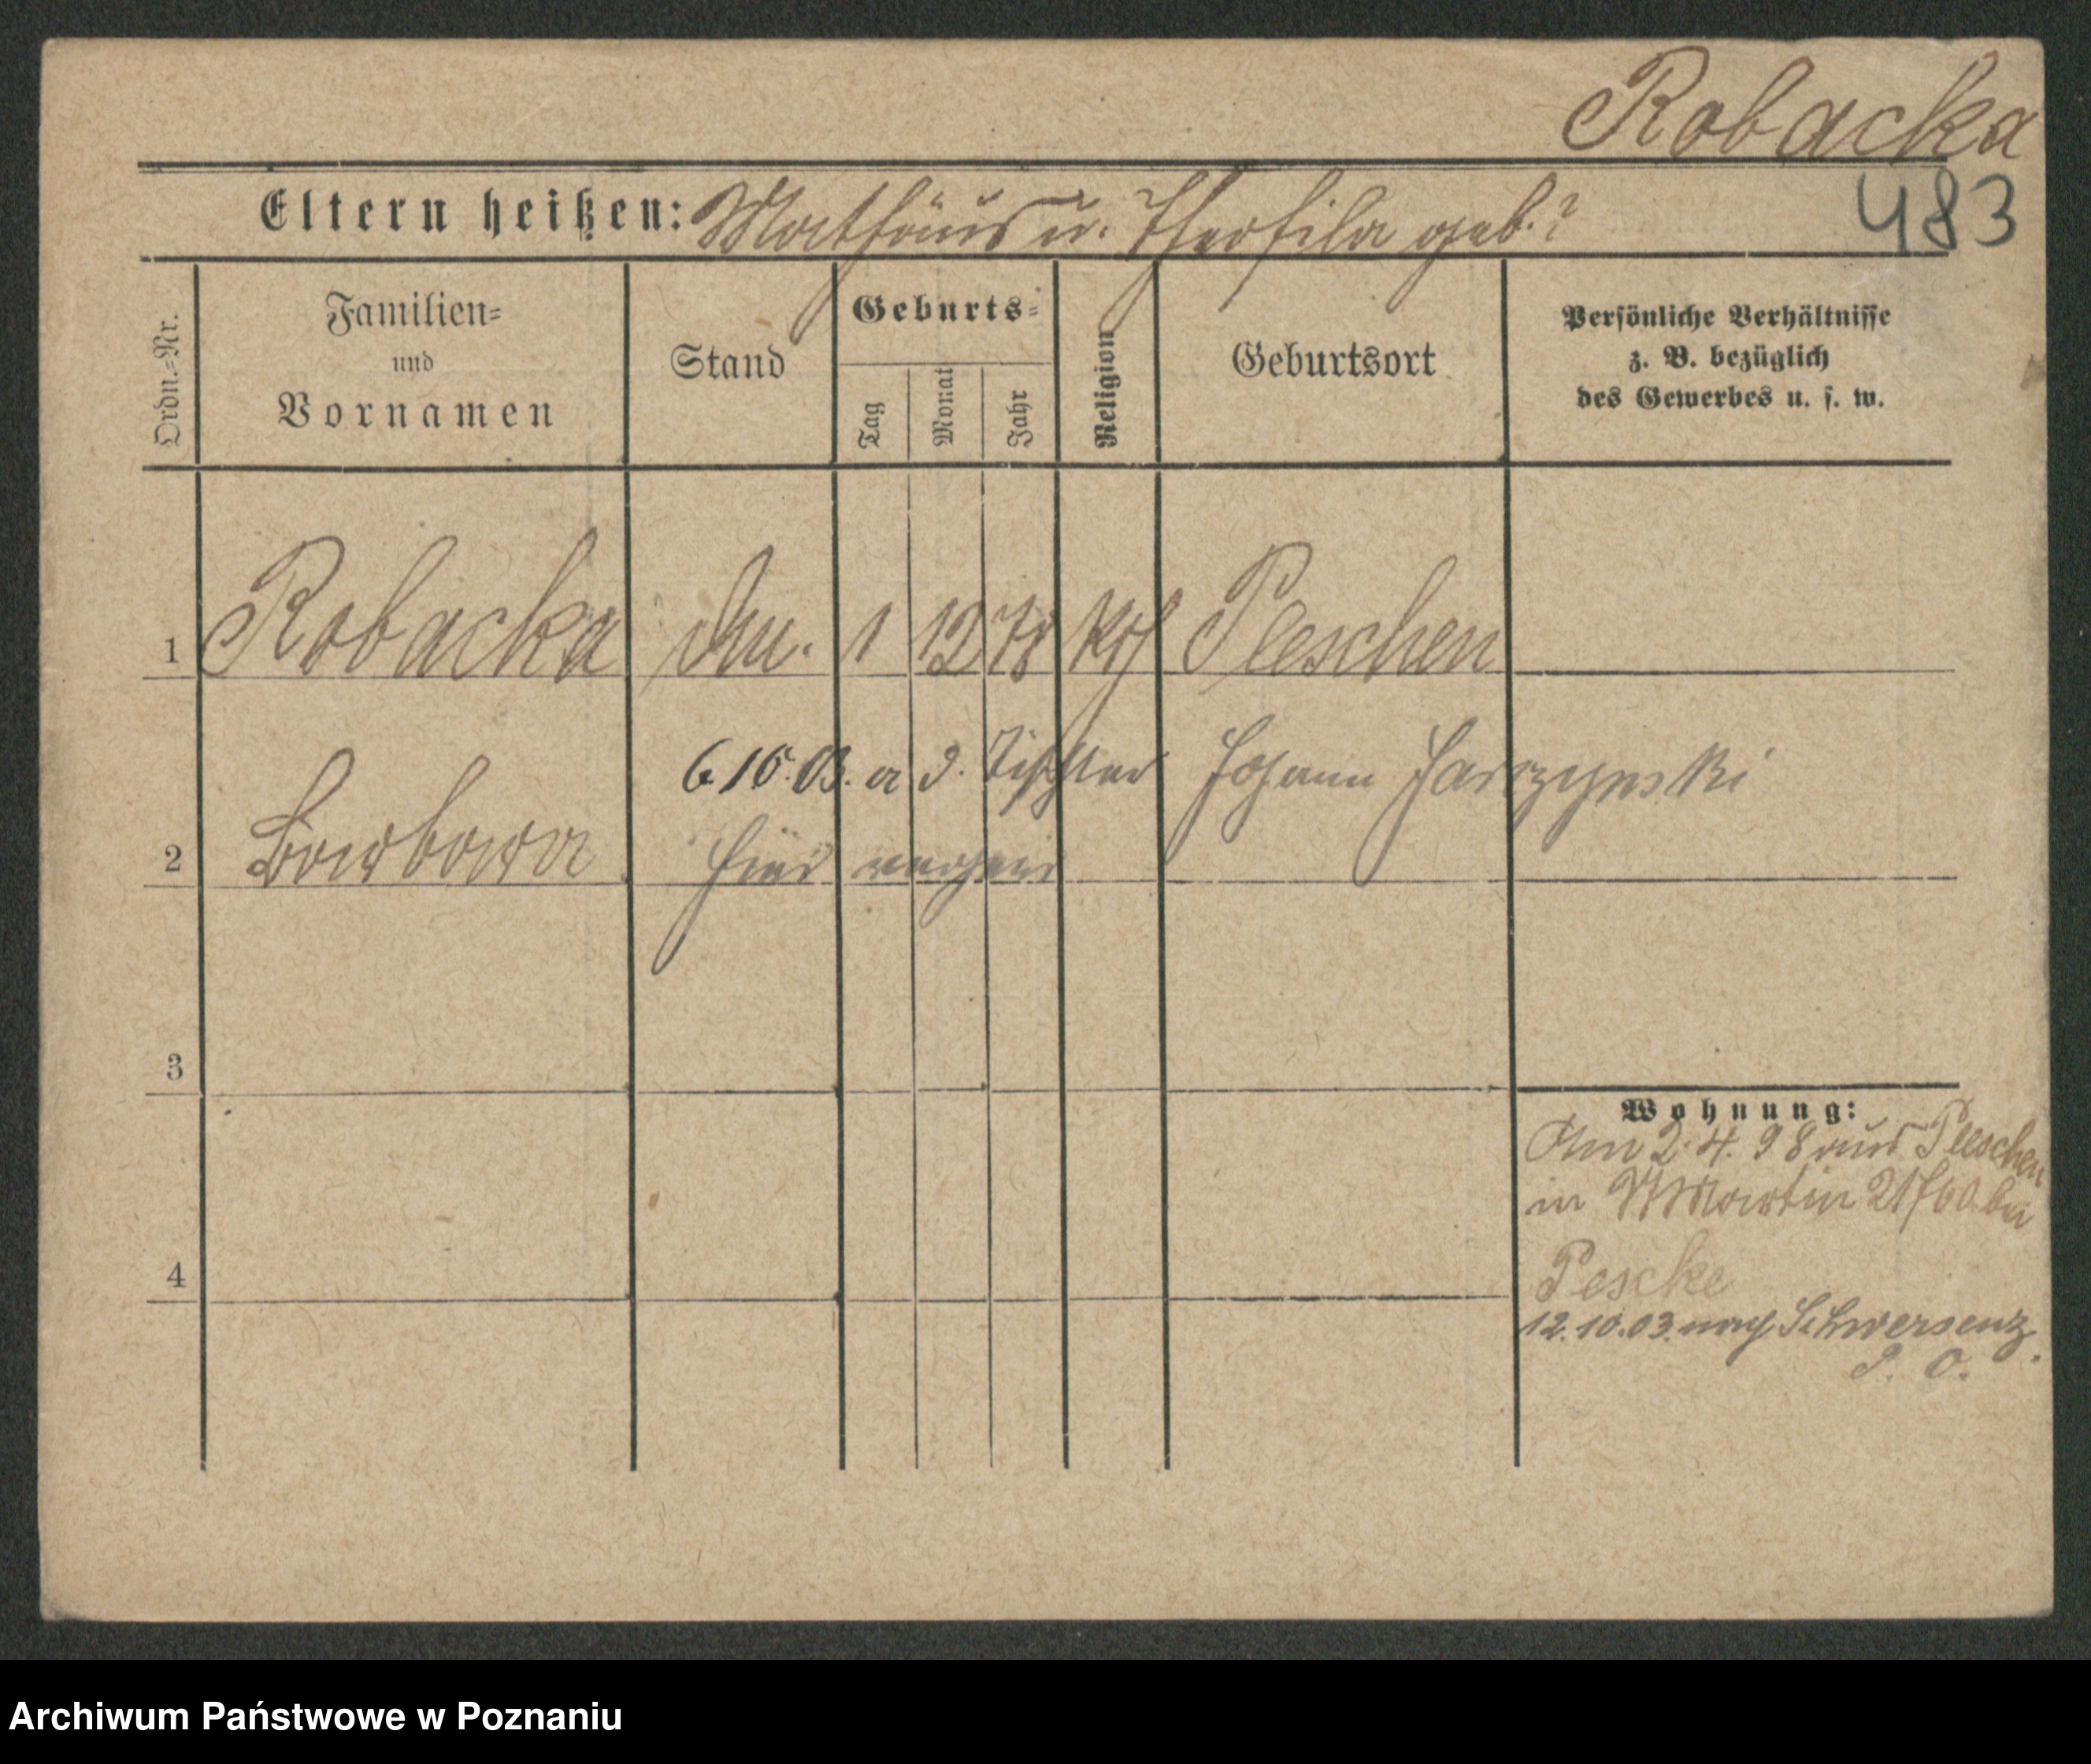 Robacka
483
Eltern heißen: Mathäus u. Theofila geb. ?
Ordn.-Nr.
Familien-
und
Vornamen
Stand
Geburts-
Tag
Monat
Jahr
Religion
Geburtsort
Persönliche Verhältnisse
z. B. bezüglich
des Gewerbes u. s. w.
1 Robacka 1 12 78 kth Pleschen
6.10.03. a d. Tischler Johann Jarzynski
2 Barbara hier verheir
3
Wohnung:
Am 2.4.98 aus Pleschen
in Martin 21/60 bei
4
Peschke
12.10.03. nach Schwersenz.
P. O.
Archiwum Państwowe w Poznaniu